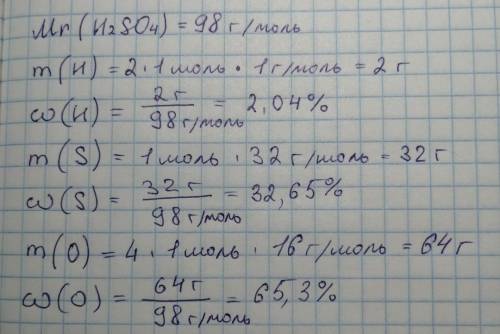 Mr(H2SO4) = 98 г/моль
m(H) = 2 · 1 моль · 1 г/моль = 2 г
ω(H) = 2г / 98 г/моль = 2,04%
m(S) = 1 моль · 32 г/моль = 32 г
ω(S) = 32 г / 98 г/моль = 32,65%
m(O) = 4 · 1 моль · 16 г/моль = 64 г
ω(O) = 64 г / 98 г/моль = 65,3%